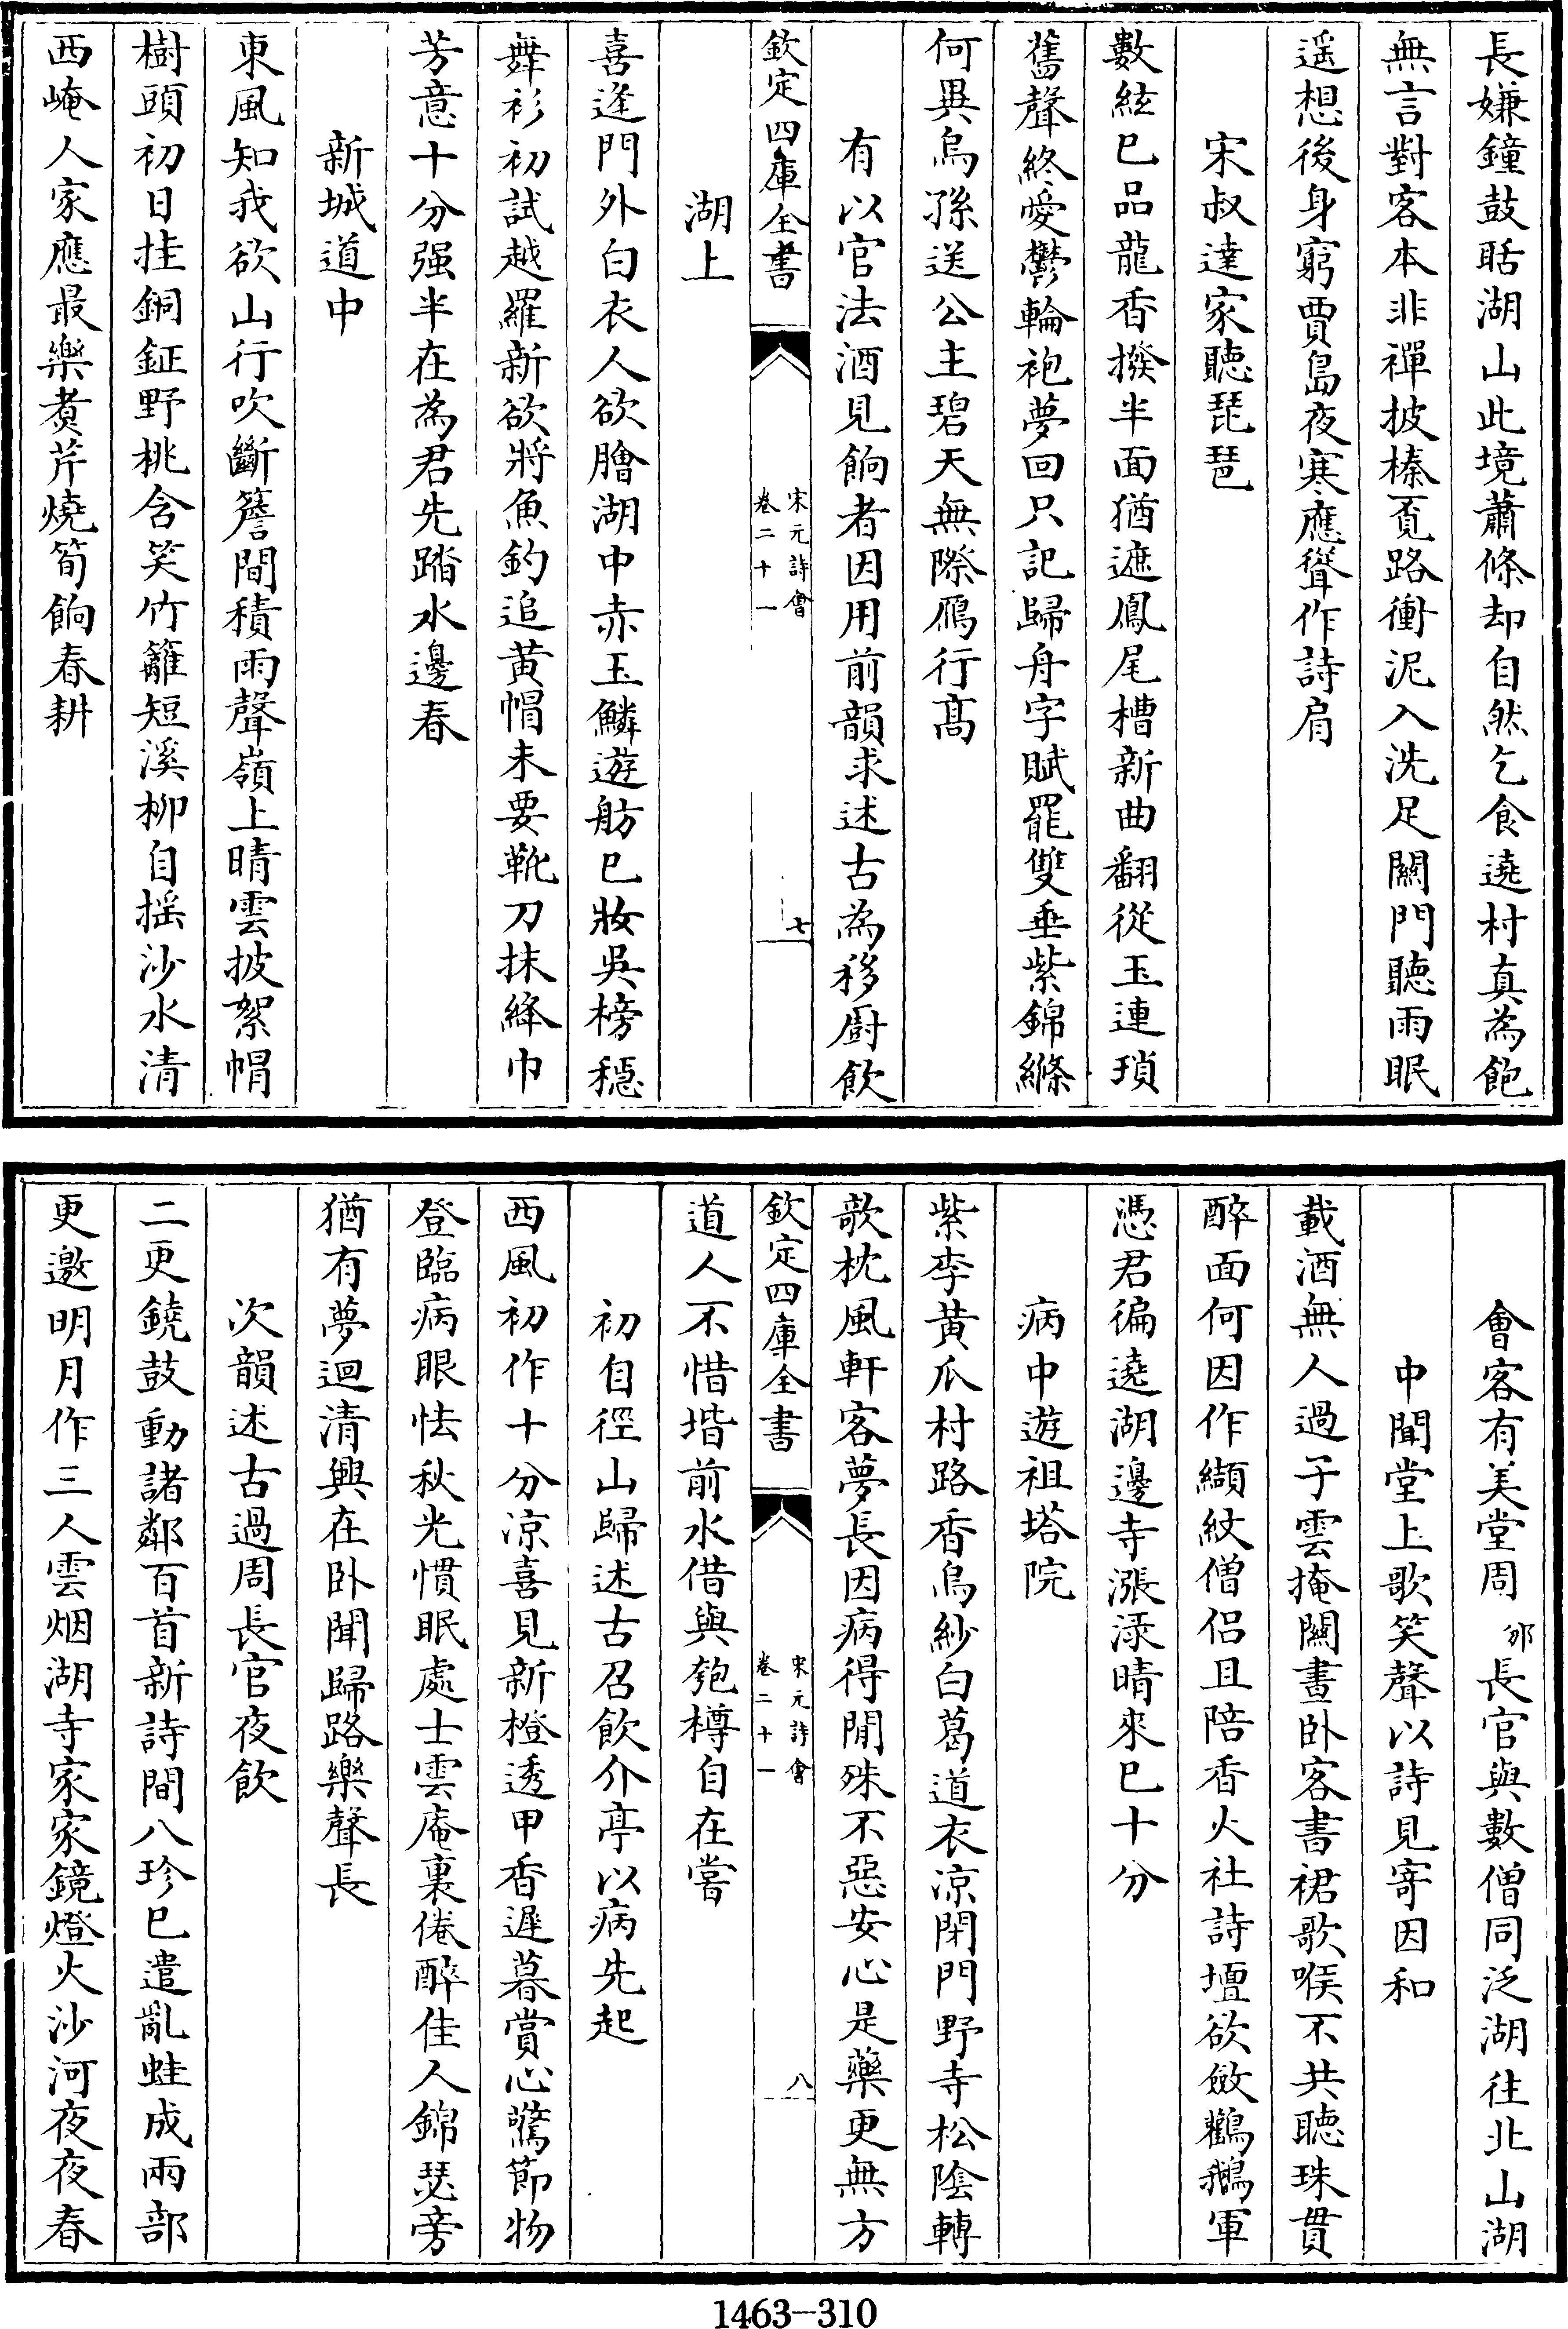 長嫌鐘鼓聒湖山此境蕭條却自然乞食遶村真為飽
無言對客本非禪披榛覔路衝泥入洗足關門聽雨眠
遥想後身窮賈島夜寒應聳作詩肩
宋叔達家聽琵琶
數絃已品龍香撥半面猶遮鳳尾槽新曲翻從玉連瑣
舊聲終愛鬱輪袍夢回只記歸舟字賦罷雙垂紫錦縧
何異烏孫送公主碧天無際鴈行髙
有以官法酒見餉者因用前韻求述古為移厨飲
欽定四庫全書
宋元詩會
卷二十一
七
湖上
喜逢門外白衣人欲膾湖中赤玉鱗遊舫已妝吳榜穩
舞衫初試越羅新欲將魚釣追黄帽未要靴刀抹絳巾
芳意十分强半在為君先踏水邊春
新城道中
東風知我欲山行吹斷簷間積雨聲嶺上晴雲披絮帽
樹頭初日挂銅鉦野桃含笑竹籬短溪柳自搖沙水清
西崦人家應最樂煑芹燒筍餉春耕
會客有美堂周邠長官與數僧同泛湖往北山湖
中聞堂上歌笑聲以詩見寄因和
載酒無人過子雲掩關晝卧客書裙歌喉不共聽珠貫
醉面何因作纈紋僧侣且陪香火社詩壇欲斂鸛鵝軍
憑君徧遶湖邊寺漲渌晴來已十分
病中遊祖塔院
紫李黄瓜村路香烏紗白葛道衣凉閉門野寺松陰轉
欹枕風軒客夢長因病得閒殊不惡安心是藥更無方
欽定四庫全書
宋元詩會
卷二十一
八
道人不惜堦前水借與匏樽自在嘗
初自徑山歸述古召飲介亭以病先起
西風初作十分凉喜見新橙透甲香遲暮賞心驚節物
登臨病眼怯秋光慣眠處士雲庵裏倦醉佳人錦瑟旁
猶有夢迴清興在卧聞歸路樂聲長
次韻述古過周長官夜飲
二更鐃鼓動諸鄰百首新詩間八珍已遣亂蛙成兩部
更邀明月作三人雲烟湖寺家家鏡燈火沙河夜夜春
1463-310